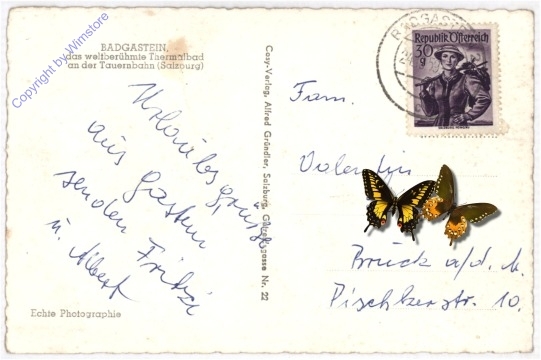 BADGASTEIN,
das weltberühmte Thermalbad
an der Tauernbahn (Salzburg)
Copyright by Wimstore
Urlaubsgrüsse
aus Gastein
senden Fritzi
u. Albert
Echte Photographie
Cosy-Verlag, Alfred Gründler, Salzburg, Nr. 22
BADGASTEIN
Republik Österreich
30
g
Fam.
Valentin
Bruck a/d. M.
10.